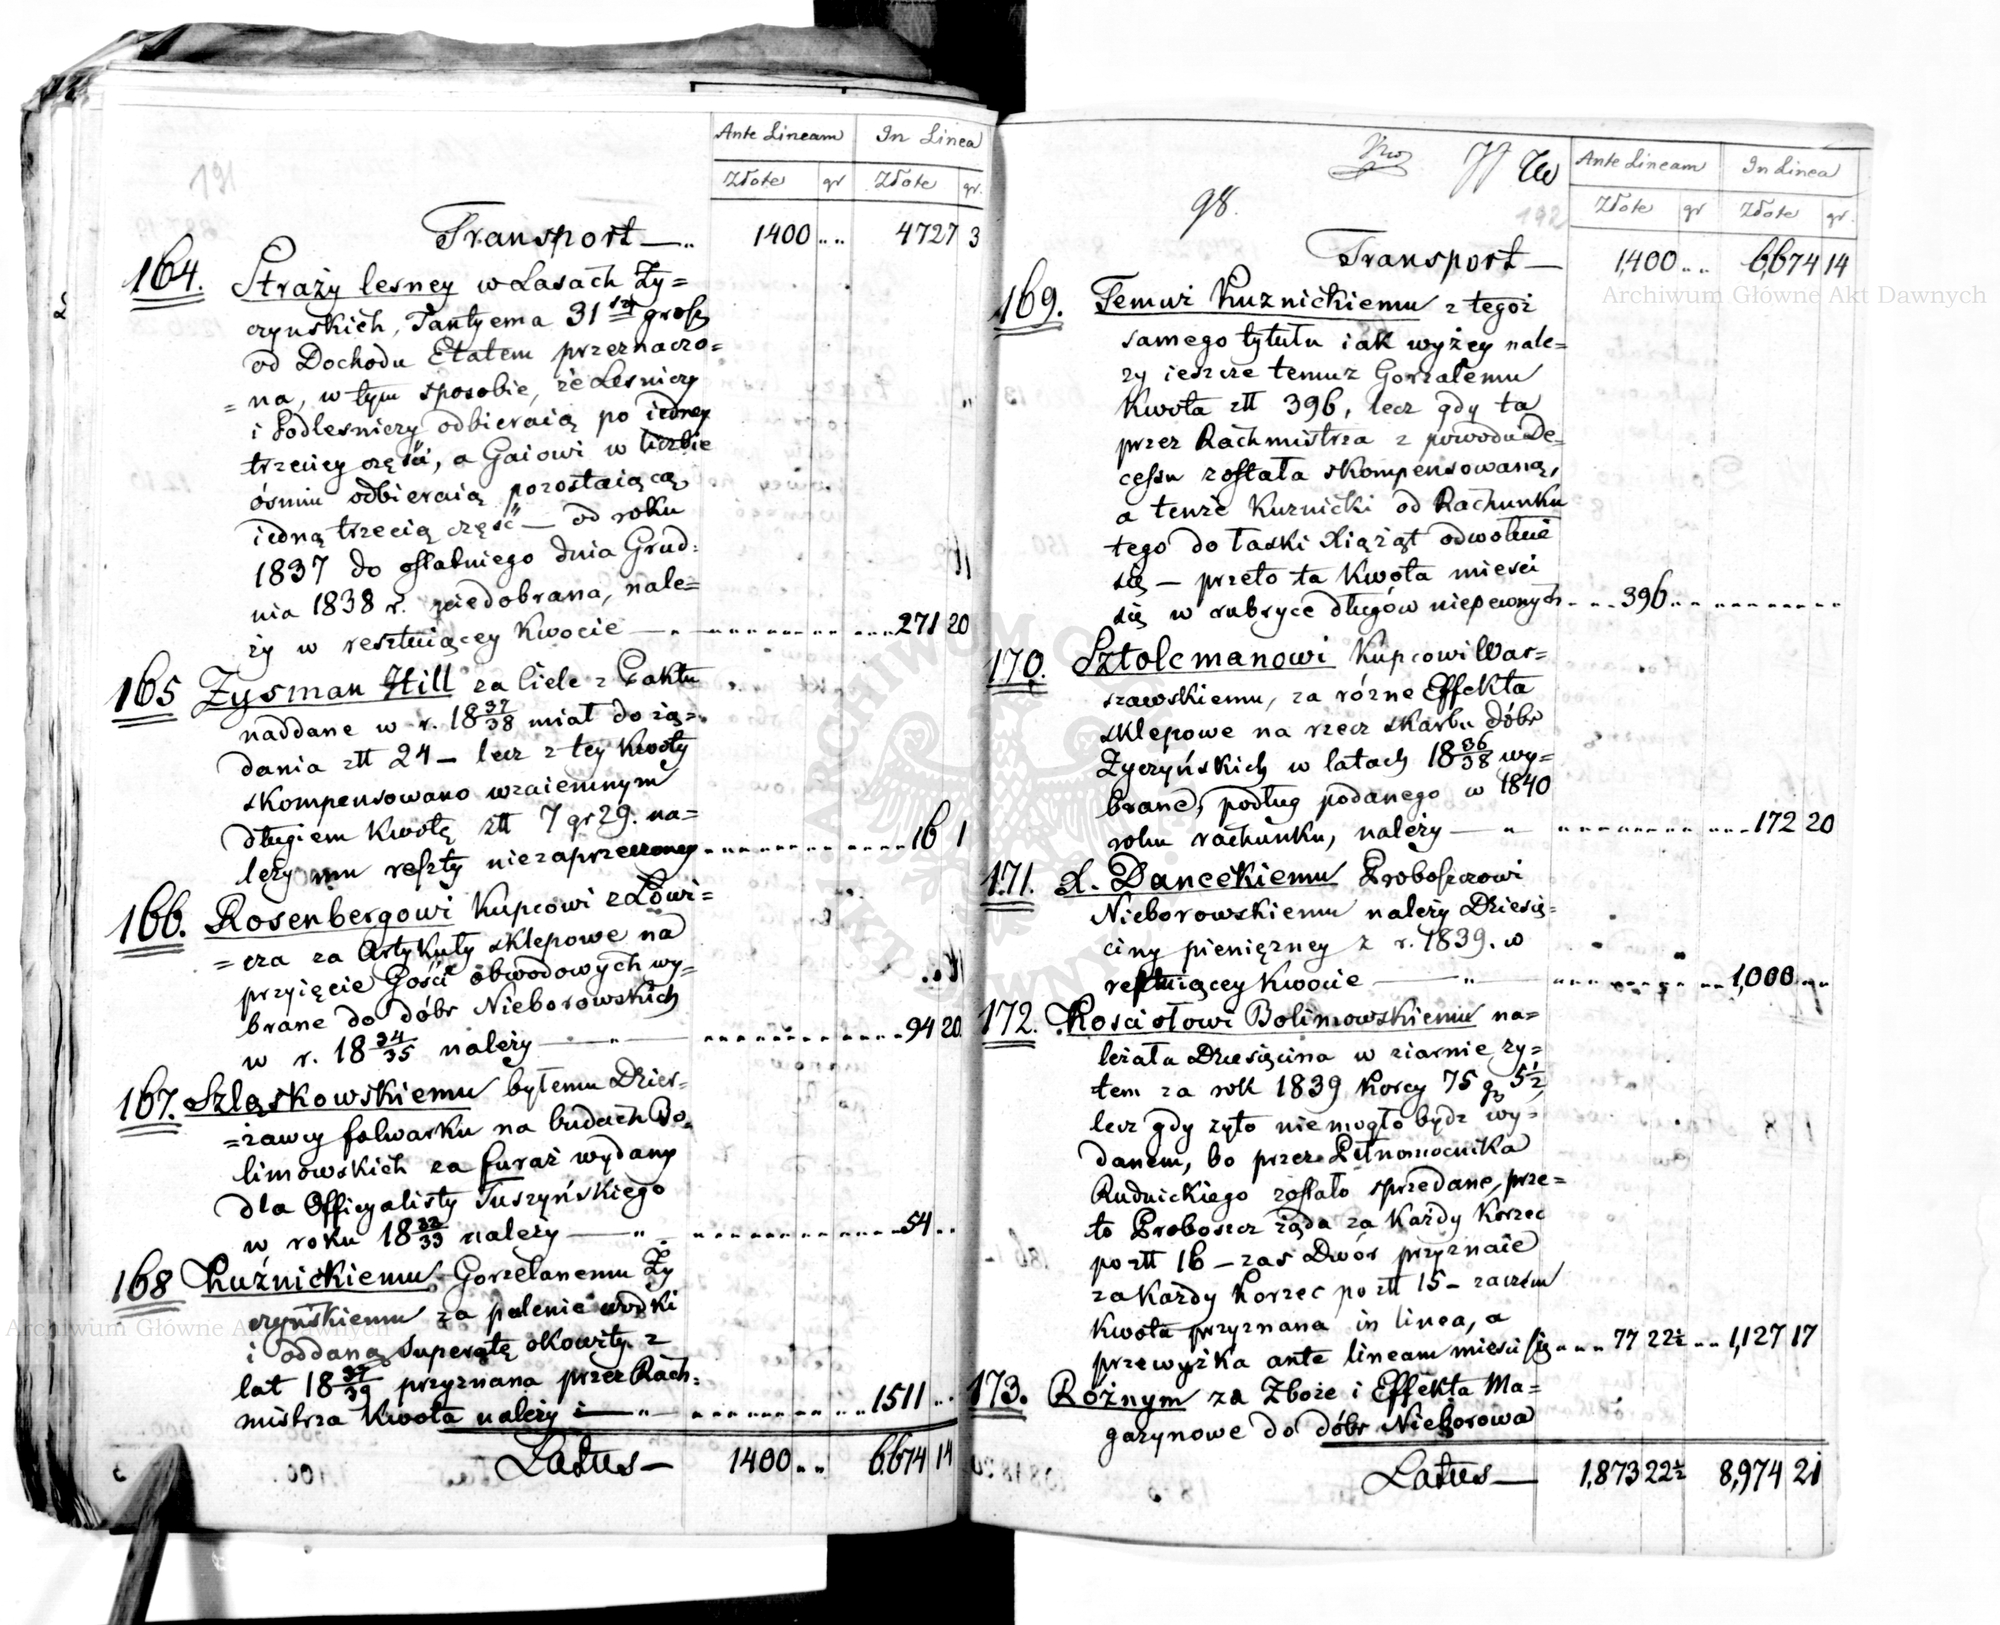 191
Ante Lineam In Linea
Złote gr Złote gr.
Transport — 1400 „ „ 4727 3
164. Straży lesney w Lasach Zy=
czynskich, Tantyema 31
od Dochodu Etatem przeznaczo=
= na, w tym sposobie, że Lesniczy
i Podlesniczy odbieraią po iedney
trzeciey części, a Gaiowi w liczbie
ósmiu odbieraią pozostaiącą
iedną trzecią część — od roku
1837 do ostatniego dnia Grud=
nia 1838 r. niedobrana, nale=
ży w resztuiącey Kwocie — 271 20
165 Zysman Hill za Ciele z Paktu
naddane w r. 18 37/38 miał do żą=
dania złł 24 — lecz z tey Kwoty
skompensowano wzaiemnym
długiem Kwotę złł 7 gr 29. na=
leży mu reszty niezaprzeczoney 16 1
166. Rosenbergowi Kupcowi z Łowi=
= cza za Artykuły sklepowe na
przyięcie Gości obwodowych wy=
brane do dóbr Nieborowskich
w r. 18 34/35 należy — 94 20
167. Szląskowskiemu byłemu Dzier=
= żawcy folwarku na budach Bo=
limowskich za furaż wydany
dla Officyalisty Tuszyńskiego
w roku 18 32/33 należy — 54 „
168 Kuźnickiemu Gorzelanemu Zy
czyńskiemu za palenie wódki
i oddaną Superatę okowity z
lat 18 37/39 przyznana przez Rach=
mistrza Kwota należy — 1511 „
Latus — 1400 „ „ 6674 14
98. 192
Ante Lineam In Linea
Złote gr Złote gr.
Transport — 1,400 „ „ 6,674 14
169. Temuż Kuznickiemu z tegoż
samego tytułu iak wyżey nale=
ży ieszcze temuz Gorzałemu
Kwota złł 396, lecz gdy ta
przez Rachmistrza z powodu De=
cessu została skompensowaną,
a tenże Kuznicki od Rachunku
tego do łaski Xiążąt odwołuie
się — przeto ta Kwota mieści
się w rubryce długów niepewnych 396
170. Sztolcmanowi Kupcowi War=
szawskiemu, za różne Effekta
sklepowe na rzecz skarbu dóbr
Zyczyńskich w latach 18 36/38 wy=
brane, podług podanego w 1840
roku rachunku, należy — 172 20
171. X. Danceckiemu Proboszczowi
Nieborowskiemu należy Dziesię=
ciny pieniężney z r. 1839. w
resztuiącey Kwocie — 1,000 „
172. Kościołowi Bolimowskiemu na=
leżała Dziesięcina w ziarnie ży=
tem za rok 1839 Korcy 75 g 5½
lecz gdy żyto nie mogło bydz wy=
danem, bo przez Pełnomocnika
Rudnickiego zostało sprzedane, prze=
to Proboszcz żąda za Każdy Korzec
po złł 16 — zas Dwór przyznaie
za Każdy Korzec po złł 15 — zaczem
Kwota przyznana in linea, a
przewyżka ante lineam mieści się 77 22½ 1,127 17
173. Różnym za Zboże i Effekta Ma=
gazynowe do dóbr Nieborowa
Latus — 1,873 22½ 8,974 21
Archiwum Główne Akt Dawnych
Archiwum Główne Akt Dawnych